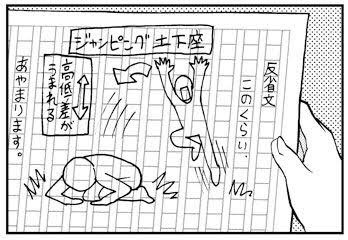 反省文
このくらい、
ジャンピング土下座
高低差が
うまれる
あやまります。